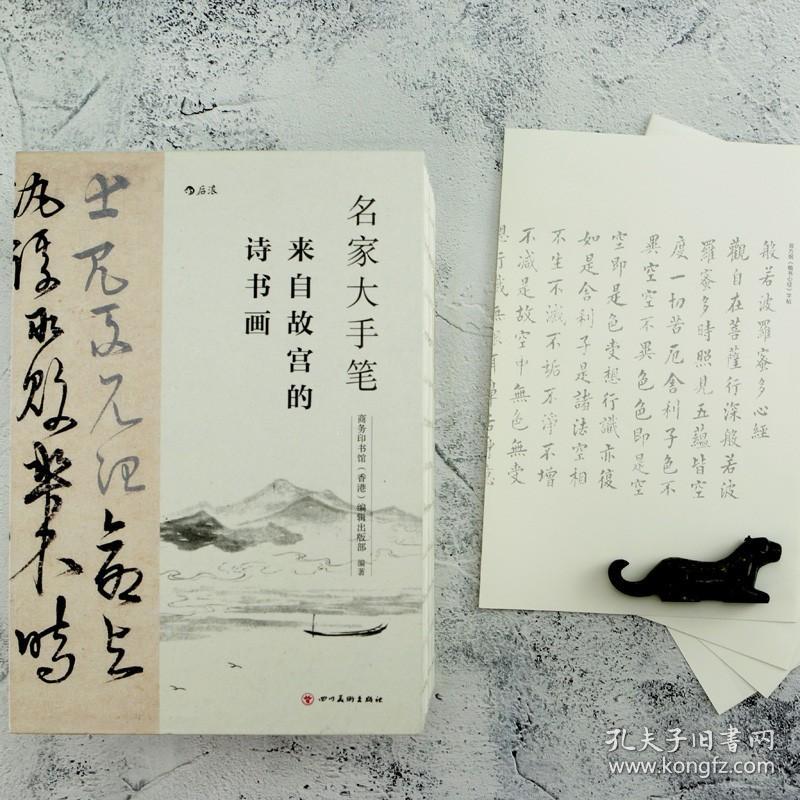 后浪
名家大手笔
来自故宫的
诗书画
商务印书馆（香港）编辑出版部 编著
四川美术出版社
般若波羅蜜多心經
觀自在菩薩行深般若波
羅蜜多時照見五蘊皆空
度一切苦厄舍利子色不
異空空不異色色即是空
空即是色受想行識亦復
如是舍利子是諸法空相
不生不滅不垢不淨不增
不減是故空中無色無受
想行識無
孔夫子旧书网
www.kongfz.com